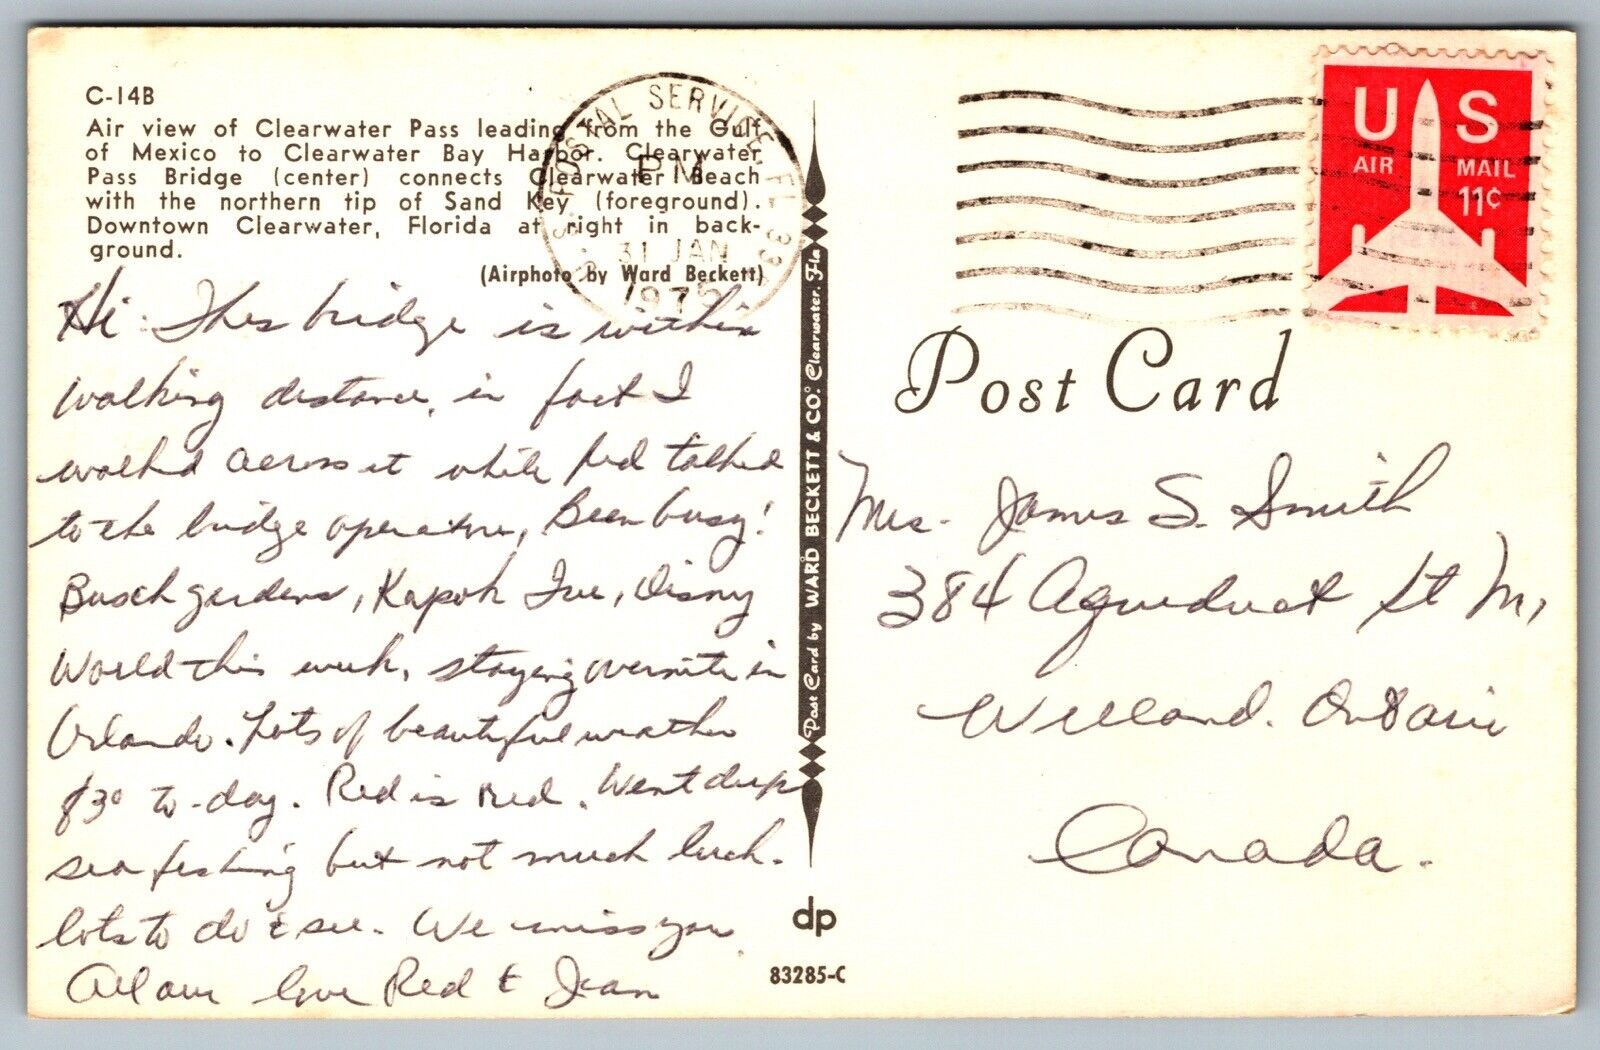 C-14B
Air view of Clearwater Pass leading from the Gulf
of Mexico to Clearwater Bay Harbor. Clearwater
Pass Bridge (center) connects Clearwater Beach
with the northern tip of Sand Key (foreground).
Downtown Clearwater, Florida at right in back-
ground.
(Airphoto by Ward Beckett)
Hi. This bridge is within
walking distance, in fact I
walked across it while Red talked
to the bridge operator, Been busy!
Busch gardens, Kapok Tree, Disney
World this week, staying overnite in
Orlando. Lots of beautiful weather
83° to-day. Red is red. Went deep
sea fishing but not much luck.
lots to do & see. We miss you
All our love Red & Jean
POSTAL SERVICE, FL 33
PM
31 JAN
1975
US
AIR MAIL
11¢
Post Card
Mrs. James S. Smith
384 Aqueduct St N,
Welland. Ontario
Canada.
Post Card by WARD BECKETT & CO. Clearwater, Fla
dp
83285-C